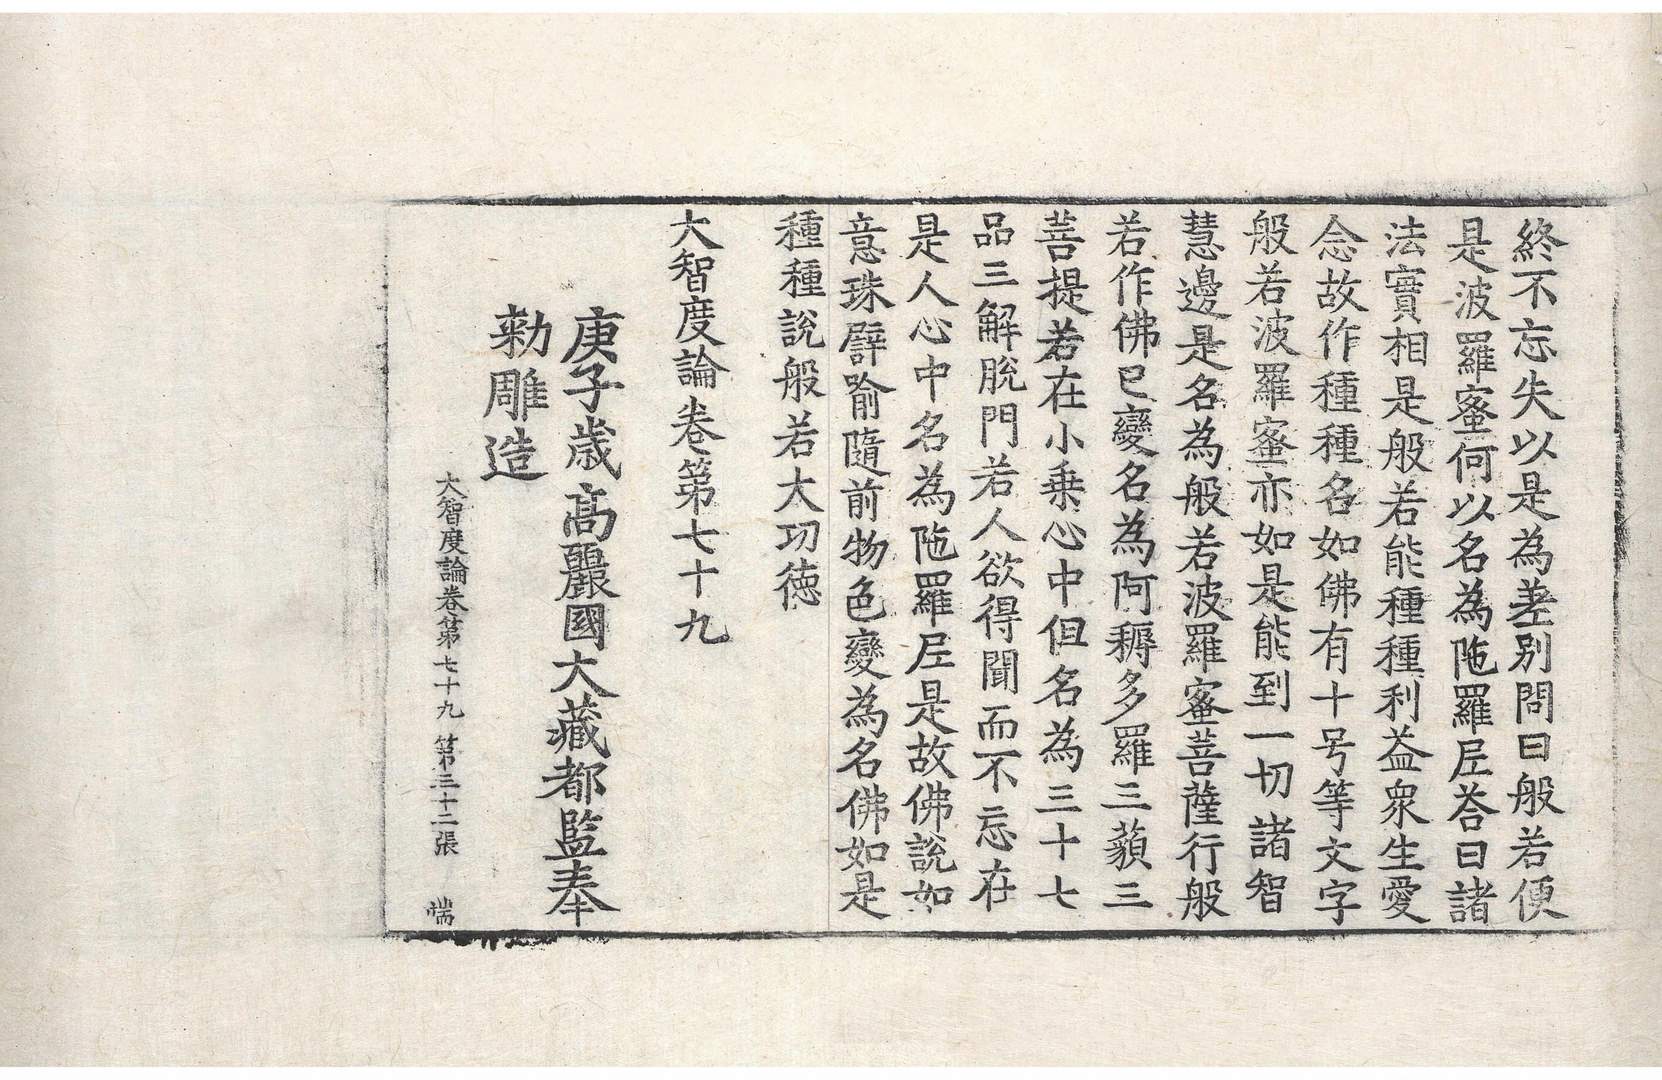 終不忘失以是為差別問曰般若便
是波羅蜜何以名為陁羅尼荅曰諸
法實相是般若能種種利益衆生愛
念故作種種名如佛有十号等文字
般若波羅蜜亦如是能到一切諸智
慧邊是名為般若波羅蜜菩薩行般
若作佛已變名為阿耨多羅三藐三
菩提若在小乗心中但名為三十七
品三解脫門若人欲得聞而不忘在
是人心中名為陁羅尼是故佛說如
意珠譬喻隨前物色變為名佛如是
種種說般若大功徳
大智度論卷第七十九
庚子歲高麗國大藏都監奉
勅雕造
大智度論卷第七十九 第三十二張 端